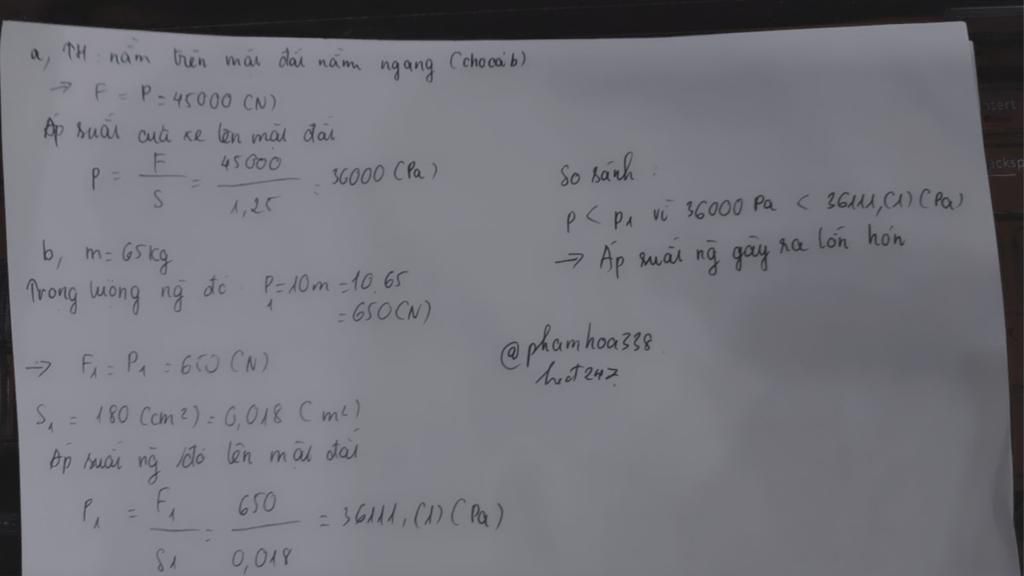 a, TH: nằm trên mặt đất nằm ngang (cho cả b)
→ F = P = 45000 (N)
Áp suất của xe lên mặt đất
P = F/S = 45000/1,25 = 36000 (Pa)
b, m = 65kg
Trọng lượng ng đó P1 = 10m = 10.65
= 650 (N)
→ F1 = P1 = 650 (N)
S1 = 180 (cm²) = 0,018 (m²)
Áp suất ng đó lên mặt đất
P1 = F1/S1 = 650/0,018 = 36111,(1) (Pa)
So sánh:
p < p1 vì 36000 Pa < 36111,(1) (Pa)
→ Áp suất ng gây ra lớn hơn
@phamhoa338